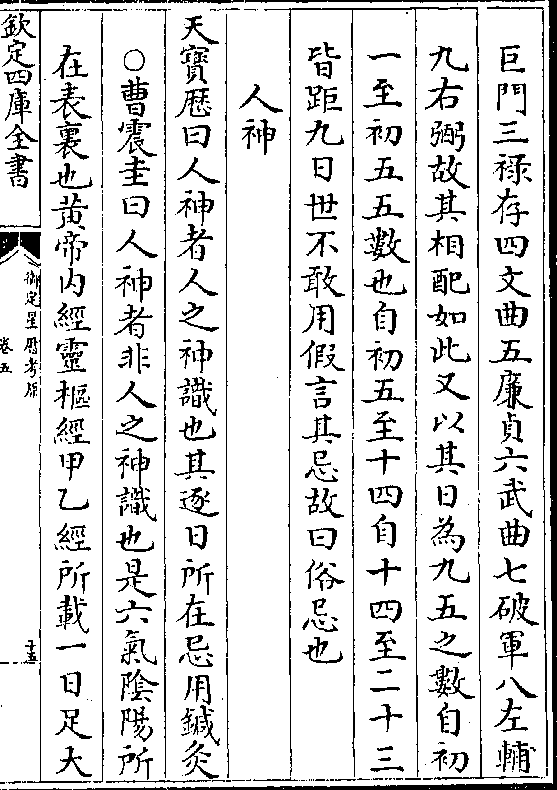 巨門三祿存四文曲五廉貞六武曲七破軍八左輔
九右弼故其相配如此又以其日為九五之數自初
一至初五五數也自初五至十四自十四至二十三
皆距九日世不敢用假言其忌故曰俗忌也
人神
天寳厯曰人神者人之神識也其逐日所在忌用鍼灸
○曹震圭曰人神者非人之神識也是六氣陰陽所
在表裏也黄帝内經靈樞經甲乙經所載一日足大
欽定四庫全書
御定星厯考原
卷五